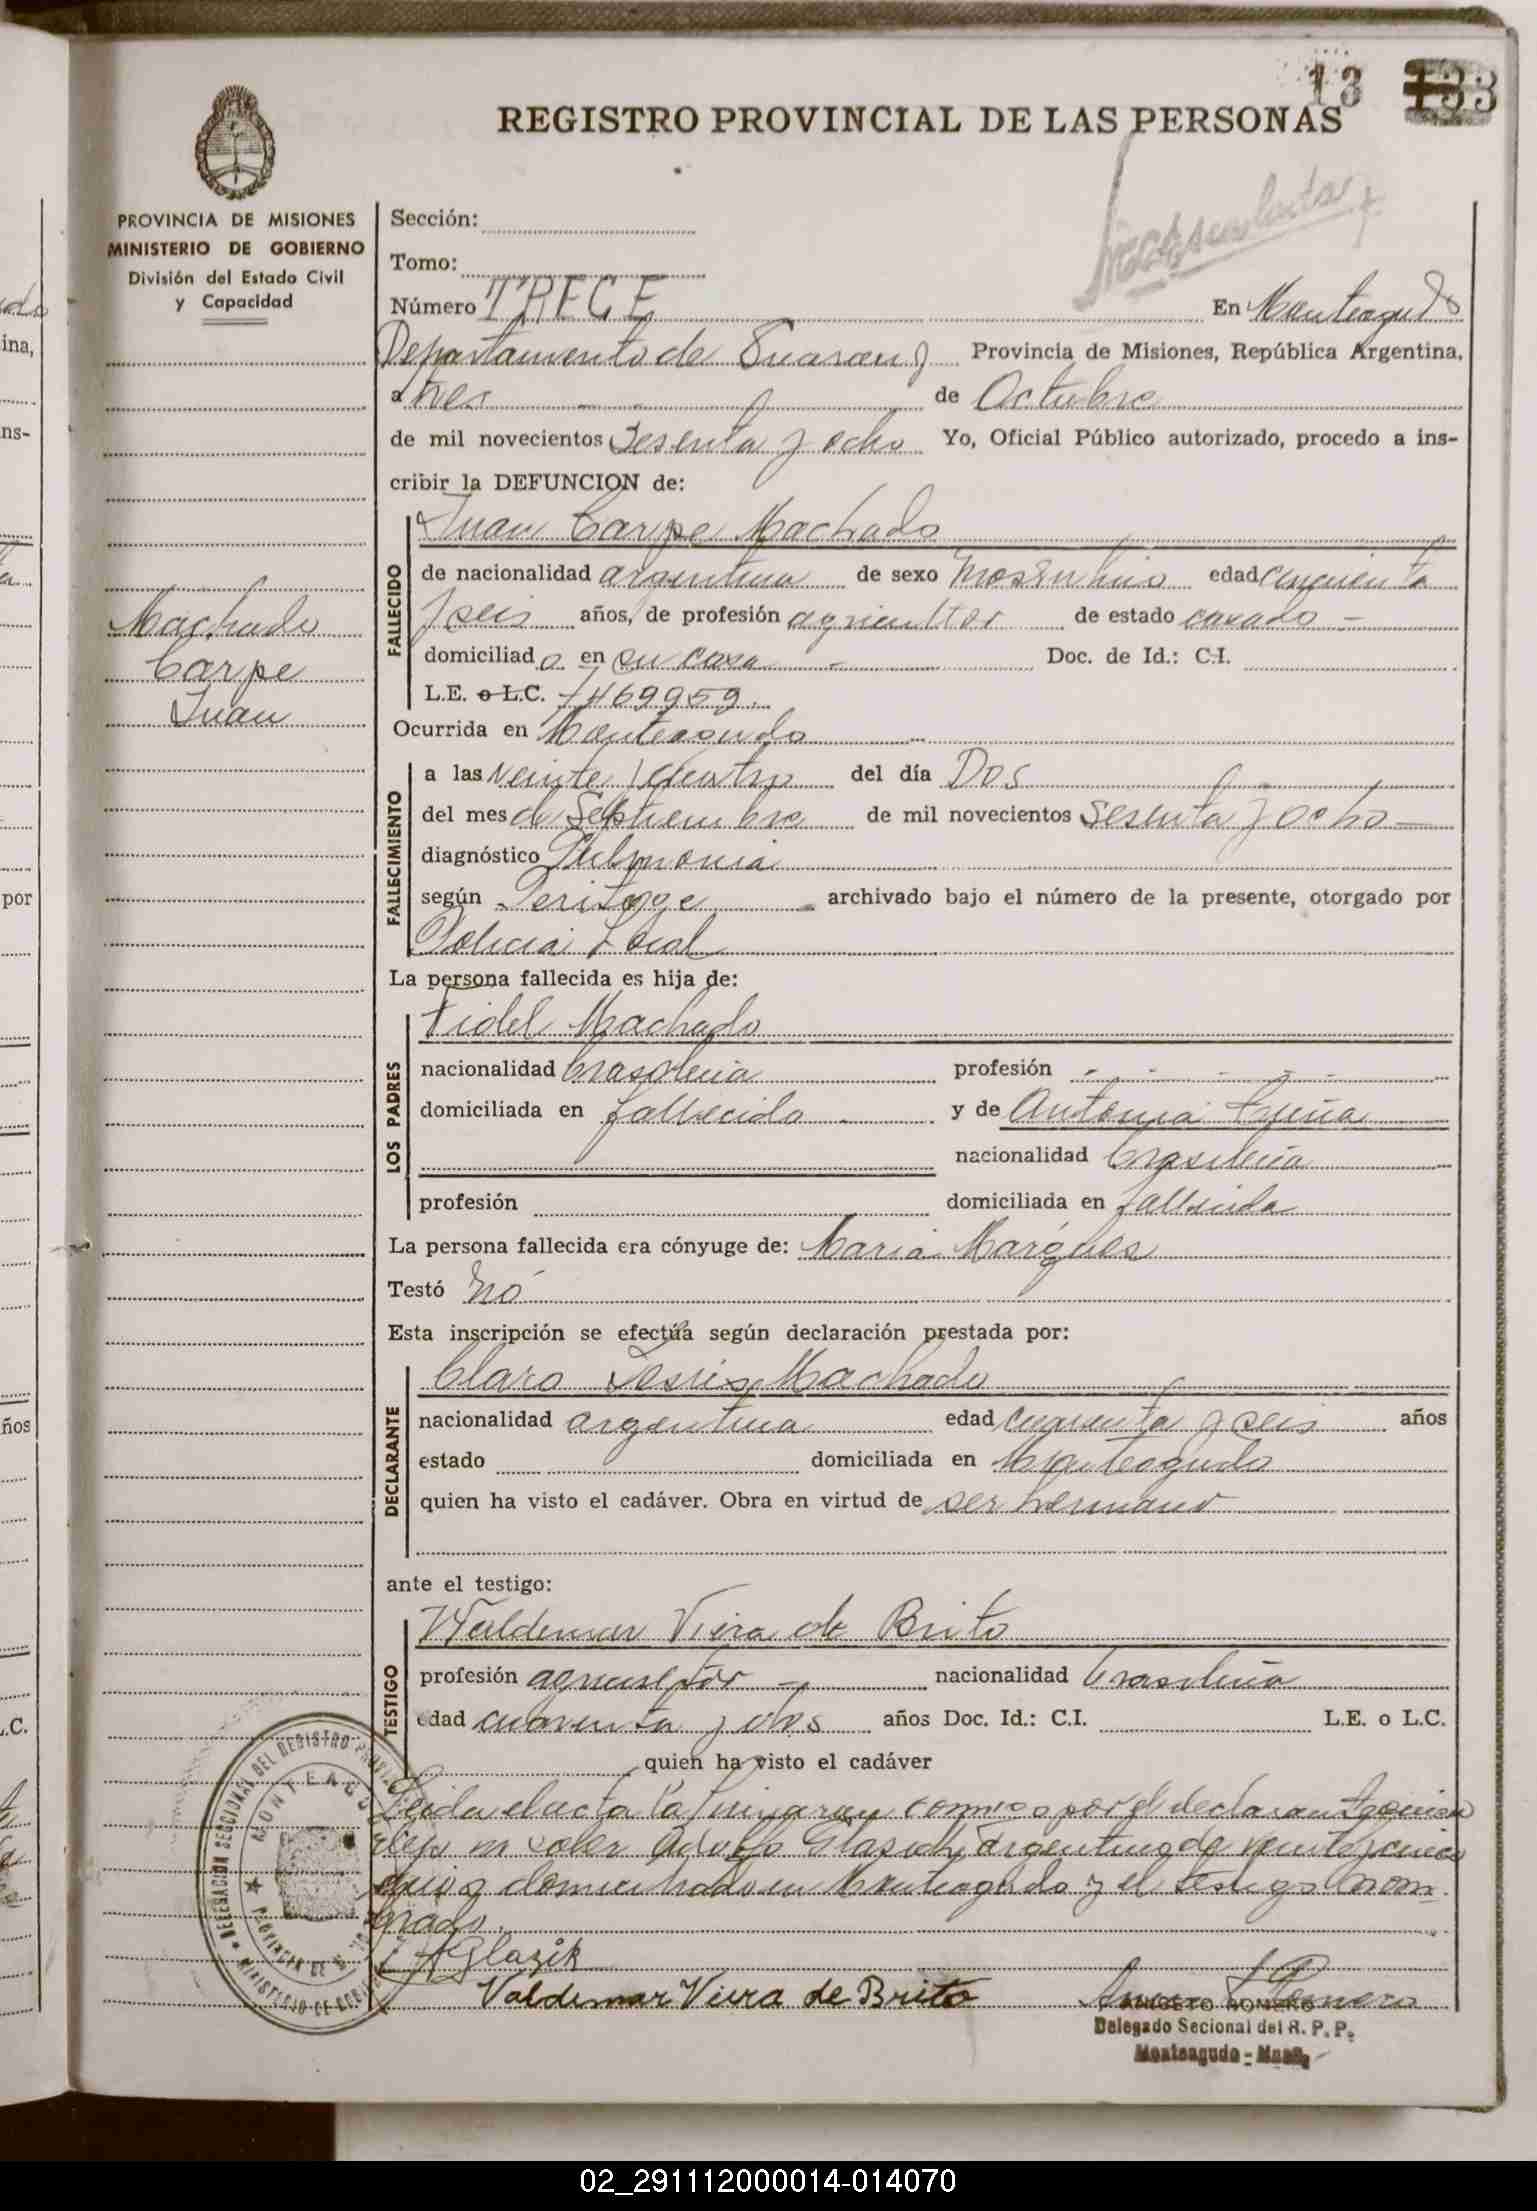 13 133
REGISTRO PROVINCIAL DE LAS PERSONAS
PROVINCIA DE MISIONES
MINISTERIO DE GOBIERNO
División del Estado Civil
y Capacidad
Machado
Carpe
Juan
Sección:
Tomo:
Número TRECE En Monteagudo
Departamento de Guarany Provincia de Misiones, República Argentina,
a tres de Octubre
de mil novecientos Sesenta y ocho Yo, Oficial Público autorizado, procedo a ins-
cribir la DEFUNCION de:
Juan Carpe Machado
FALLECIDO
de nacionalidad argentina de sexo edad cincuenta
y seis años, de profesión agricultor de estado casado -
domiciliado en su casa - Doc. de Id.: C.I.
L.E. o L.C. 7469959.
Ocurrida en Monteagudo
FALLECIMIENTO
a las veinte y cuatro del día Dos
del mes de Septiembre de mil novecientos Sesenta y ocho -
diagnóstico Pulmonia
según Peritage archivado bajo el número de la presente, otorgado por
Policia Local
La persona fallecida es hija de:
Fidel Machado
LOS PADRES
nacionalidad brasileña profesión
domiciliada en fallecido y de Antonia
nacionalidad brasileña
profesión domiciliada en fallecida
La persona fallecida era cónyuge de: Maria Márques
Testó No
Esta inscripción se efectúa según declaración prestada por:
Claro Machado
DECLARANTE
nacionalidad argentina edad cuarenta y seis años
estado domiciliada en Monteagudo
quien ha visto el cadáver. Obra en virtud de ser hermano
ante el testigo:
Waldemar Viera de Brito
TESTIGO
profesión agricultor - nacionalidad brasileña
edad cuarenta y dos años Doc. Id.: C.I. L.E. o L.C.
quien ha visto el cadáver
Leida el acta la firmaran conmigo por el declarante quien
dijo no saber Adolfo argentino de veinte y cinco
años domiciliado en Monteagudo y el testigo nom-
brado.
AGlazik
Valdemar Viera de Brito
ANICETO ROMERO
Delegado Secional del R. P. P.
Monteagudo - Mnes.
DELEGACION SECCIONAL DEL REGISTRO
MONTEAGUDO
MINISTERIO DE
02_291112000014-014070